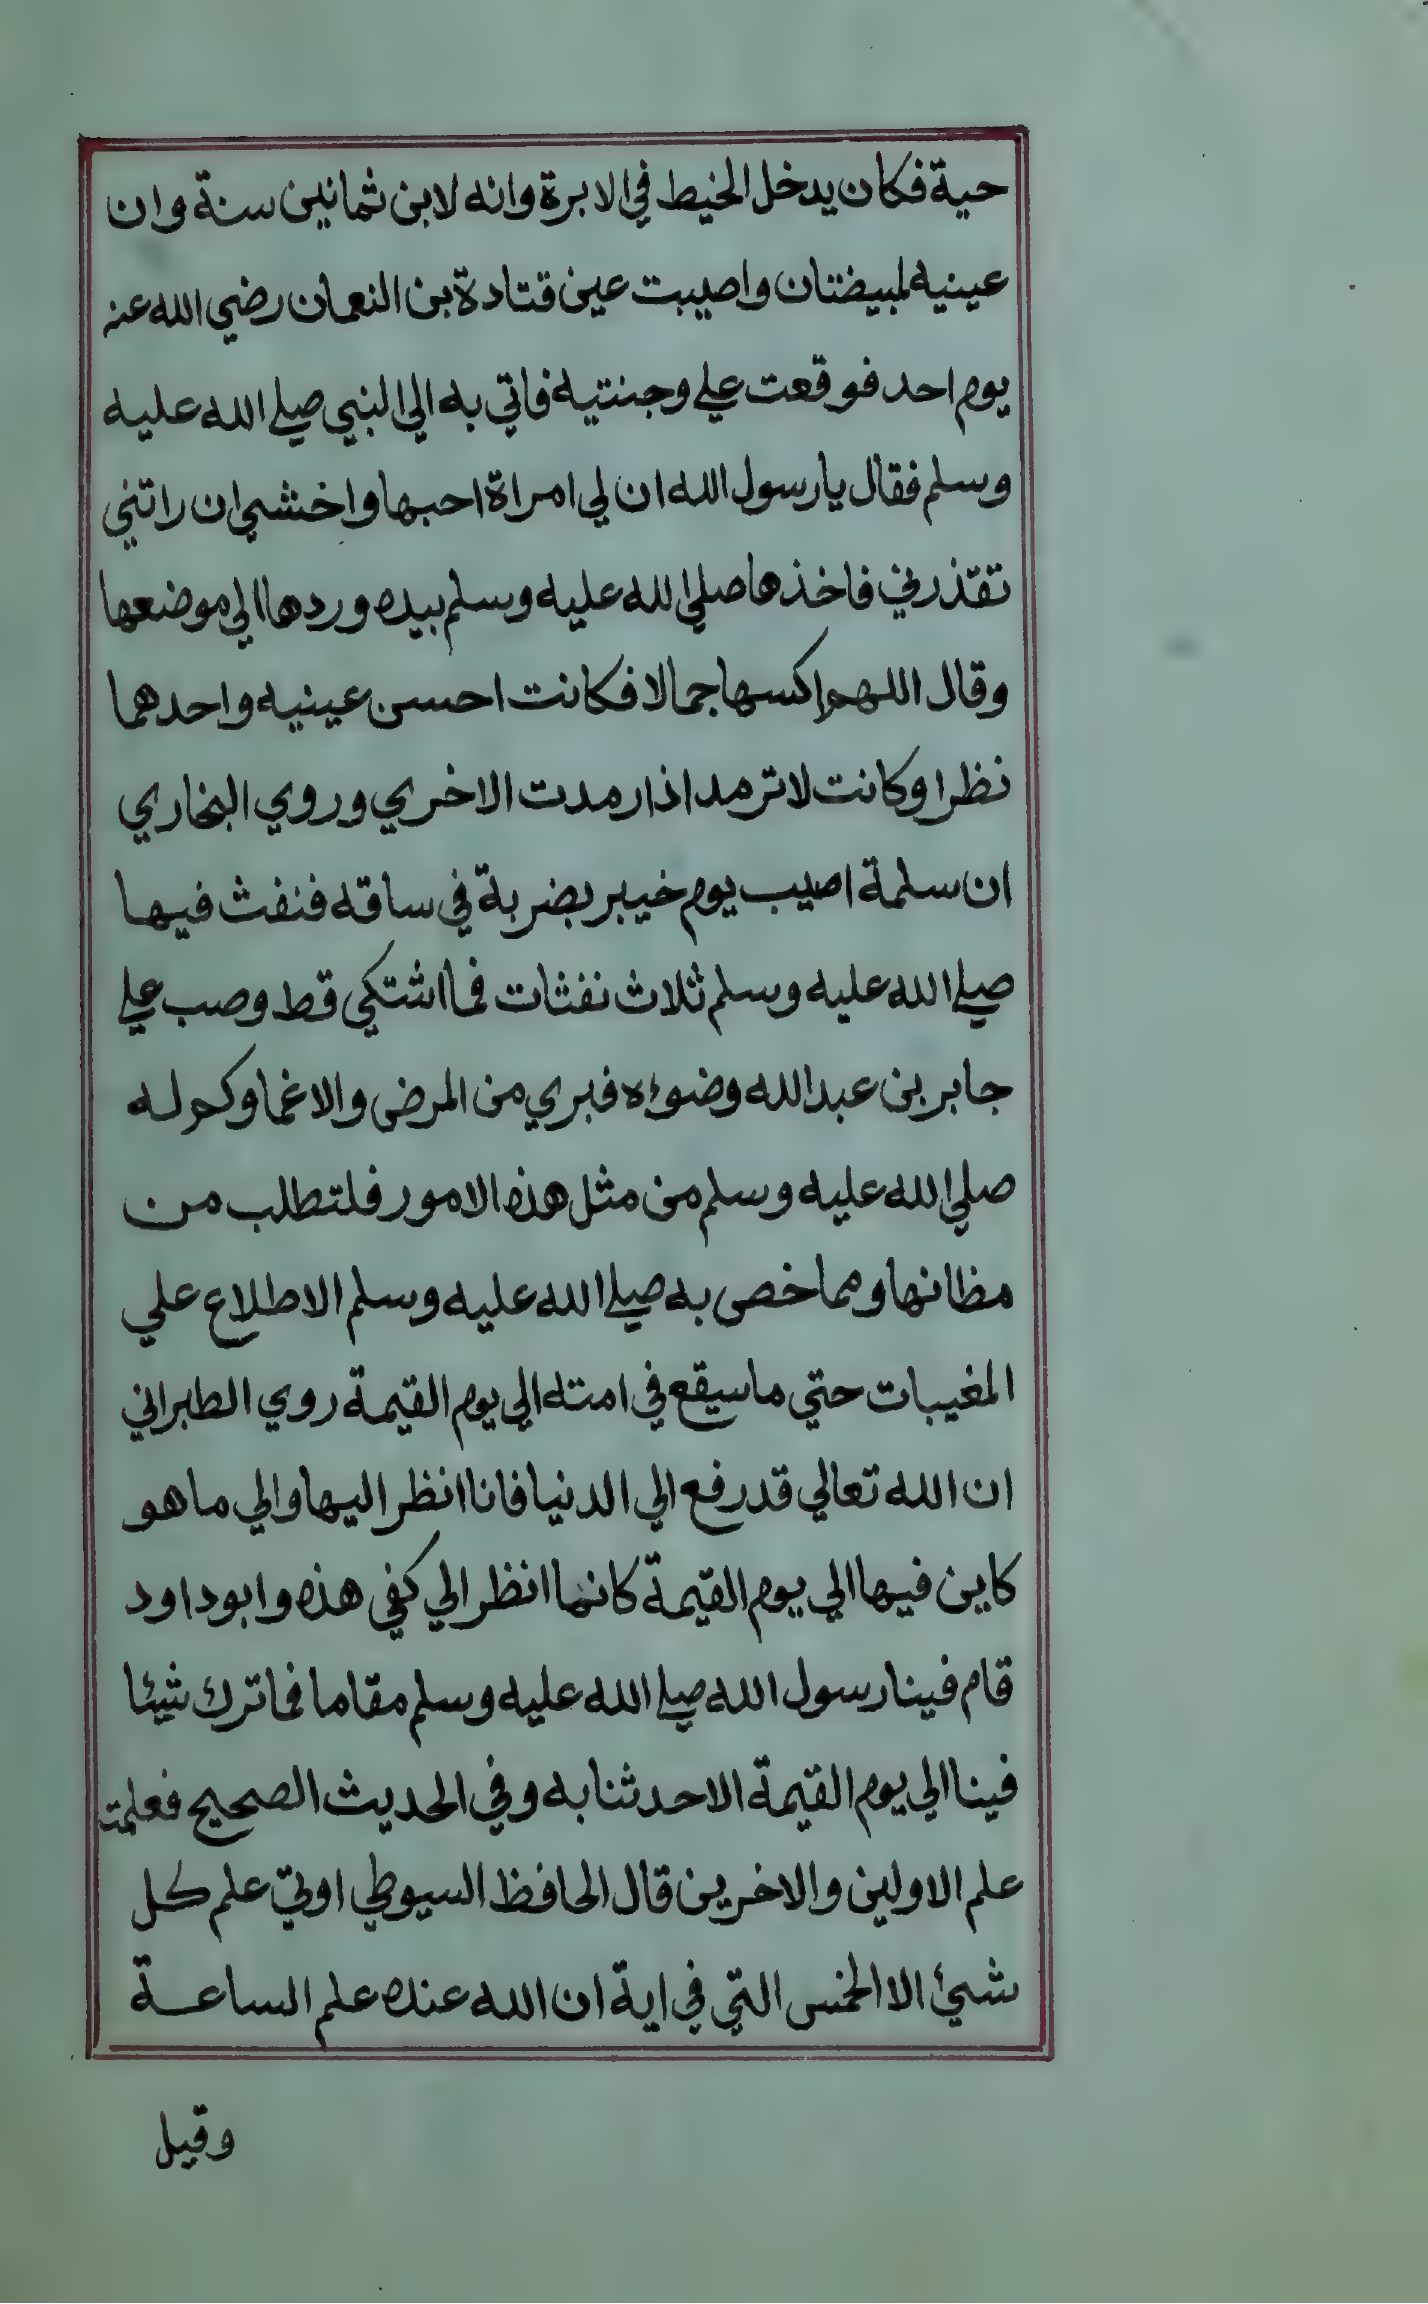 حية فكان يدخل الخيط في الابرة وانه لابن ثمانين سنة وان
عينيه لمبيضتان واصيبت عين قتادة بن النعمان رضي الله عنه
يوم احد فوقعت علي وجنتيه فاتي به الي النبي صلي الله عليه
وسلم فقال يا رسول الله ان لي امراة احبها واخشي ان راتني
تقذرني فاخذها صلي الله عليه وسلم بيده وردها الي موضعها
وقال اللهم اكسها جمالا فكانت احسن عينيه واحدهما
نظرا وكانت لا ترمد اذا رمدت الاخري وروي البخاري
ان سلمة اصيب يوم خيبر بضربة في ساقه فنفث فيها
صلي الله عليه وسلم ثلاث نفثات فما اشتكي قط وصب علي
جابر بن عبد الله وضوءه فبري من المرض والاغما وكم له
صلي الله عليه وسلم من مثل هذه الامور فلتطلب من
مظانها ومما خص به صلي الله عليه وسلم الاطلاع علي
المغيبات حتي ما سيقع في امته الي يوم القيمة روي الطبراني
ان الله تعالي قد رفع الي الدنيا فانا انظر اليها والي ما هو
كاين فيها الي يوم القيمة كانما انظر الي كفي هذه وابو داود
قام فينا رسول الله صلي الله عليه وسلم مقاما فما ترك شيئا
فينا الي يوم القيمة الا حدثنا به وفي الحديث الصحيح فعلمت
علم الاولين والاخرين قال الحافظ السيوطي اوتي علم كل
شيئ الا الخمس التي في اية ان الله عنده علم الساعة
وقيل